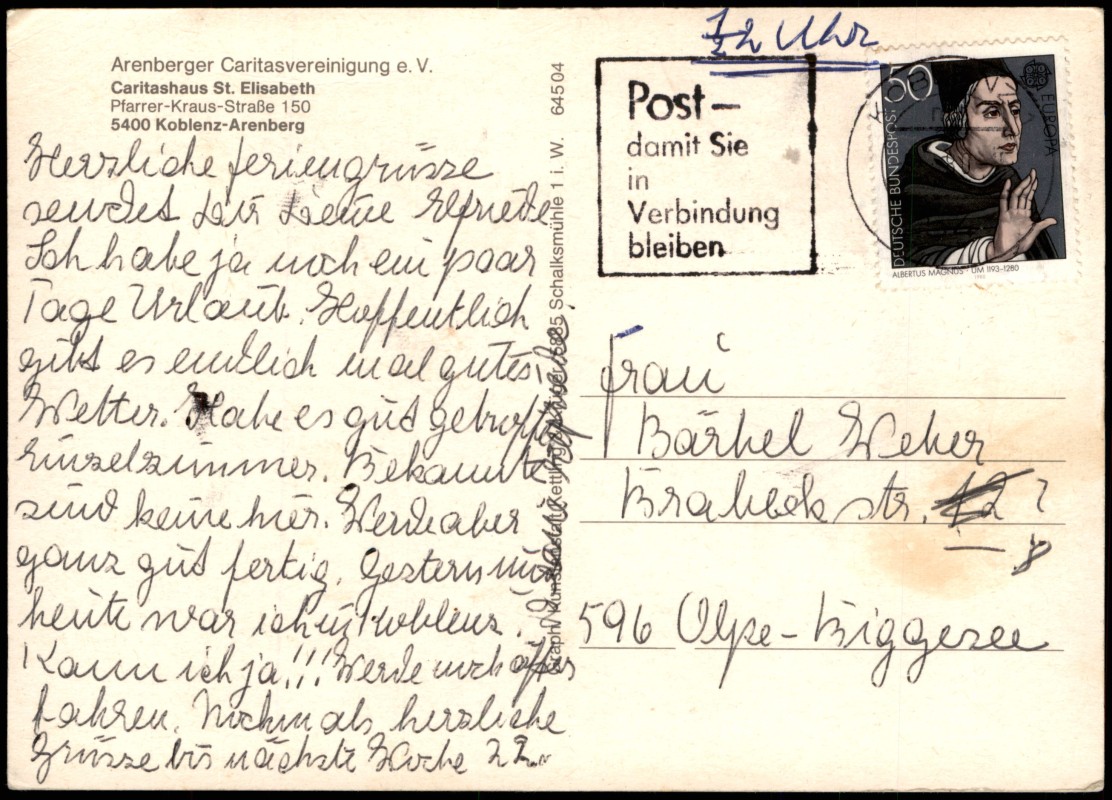 Arenberger Caritasvereinigung e. V.
Caritashaus St. Elisabeth
Pfarrer-Kraus-Straße 150
5400 Koblenz-Arenberg
Herzliche Feriengrüsse
sendet Dir Deine Elfriede
Ich habe ja noch ein paar
Tage Urlaub. Hoffentlich
gibt es endlich mal gutes
Wetter. Habe es gut getroffen
Einzelzimmer. Bekannte
sind keine hier. Werde aber
ganz gut fertig. Gestern und
heute war ich in Koblenz.
Kann ich ja!!! Werde noch öfters
fahren. Nochmals herzliche
Grüsse bis nächste Woche
64504
5885 Schalksmühle 1 i. W.
12 Uhr
Post –
damit Sie
in
Verbindung
bleiben
50
EUROPA
DEUTSCHE BUNDESPOST
ALBERTUS MAGNUS · UM 1193–1280
Frau
Bärbel Weber
Brabeckstr. 12 ?
8
596 Olpe-Biggesee